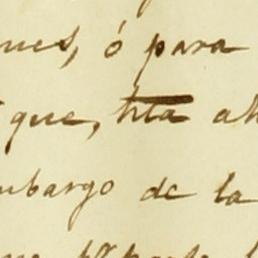 ues, ó para
que, hta ah
mbargo de la